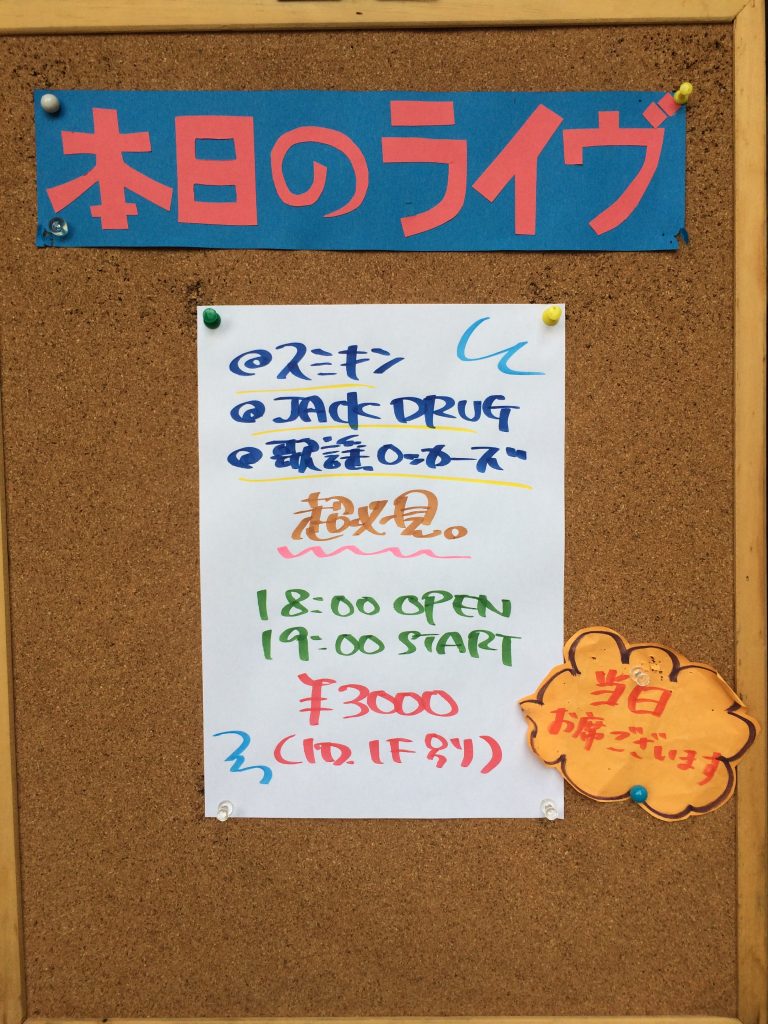 本日のライヴ
@スミキン
@JACK DRUG
@歌謡ロッカーズ
超必見。
18:00 OPEN
19:00 START
¥3000
(1D.1F別)
当日
お席ございます